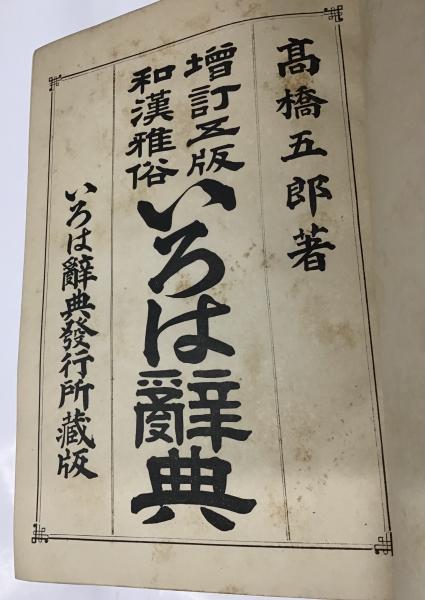 髙橋五郎著
增訂五版
和漢雅俗
いろは辭典
いろは辭典發行所藏版